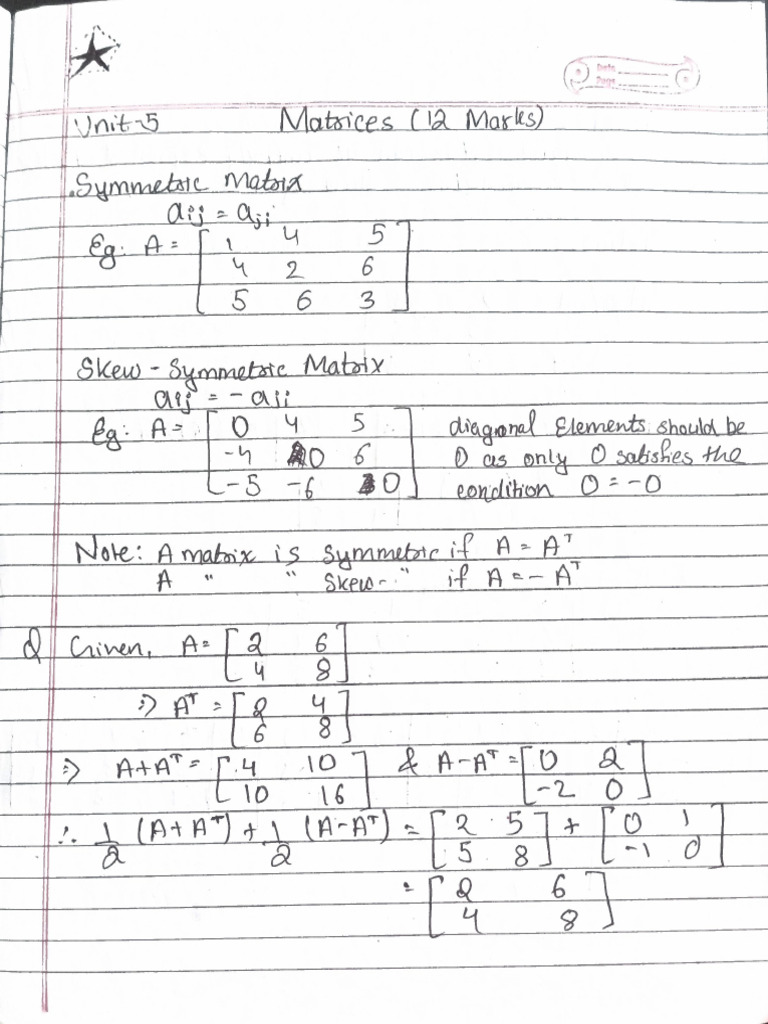 Date
Page
Unit-5 Matrices (12 Marks)
Symmetric Matrix
aij = aji
Eg: A = [ 1 4 5
4 2 6
5 6 3 ]
Skew - Symmetric Matrix
aij = - aji
Eg: A = [ 0 4 5
-4 0 6
-5 -6 0 ]
diagonal Elements should be
0 as only 0 satisfies the
condition 0 = -0
Note: A matrix is symmetric if A = Aᵀ
A " " Skew- " if A = - Aᵀ
Q Given, A = [ 2 6
4 8 ]
⇒ Aᵀ = [ 2 4
6 8 ]
⇒ A+Aᵀ = [ 4 10 & A-Aᵀ = [ 0 2
10 16 ] -2 0 ]
∴ 1/2 (A+Aᵀ) + 1/2 (A-Aᵀ) = [ 2 5 + [ 0 1
5 8 ] -1 0 ]
= [ 2 6
4 8 ]